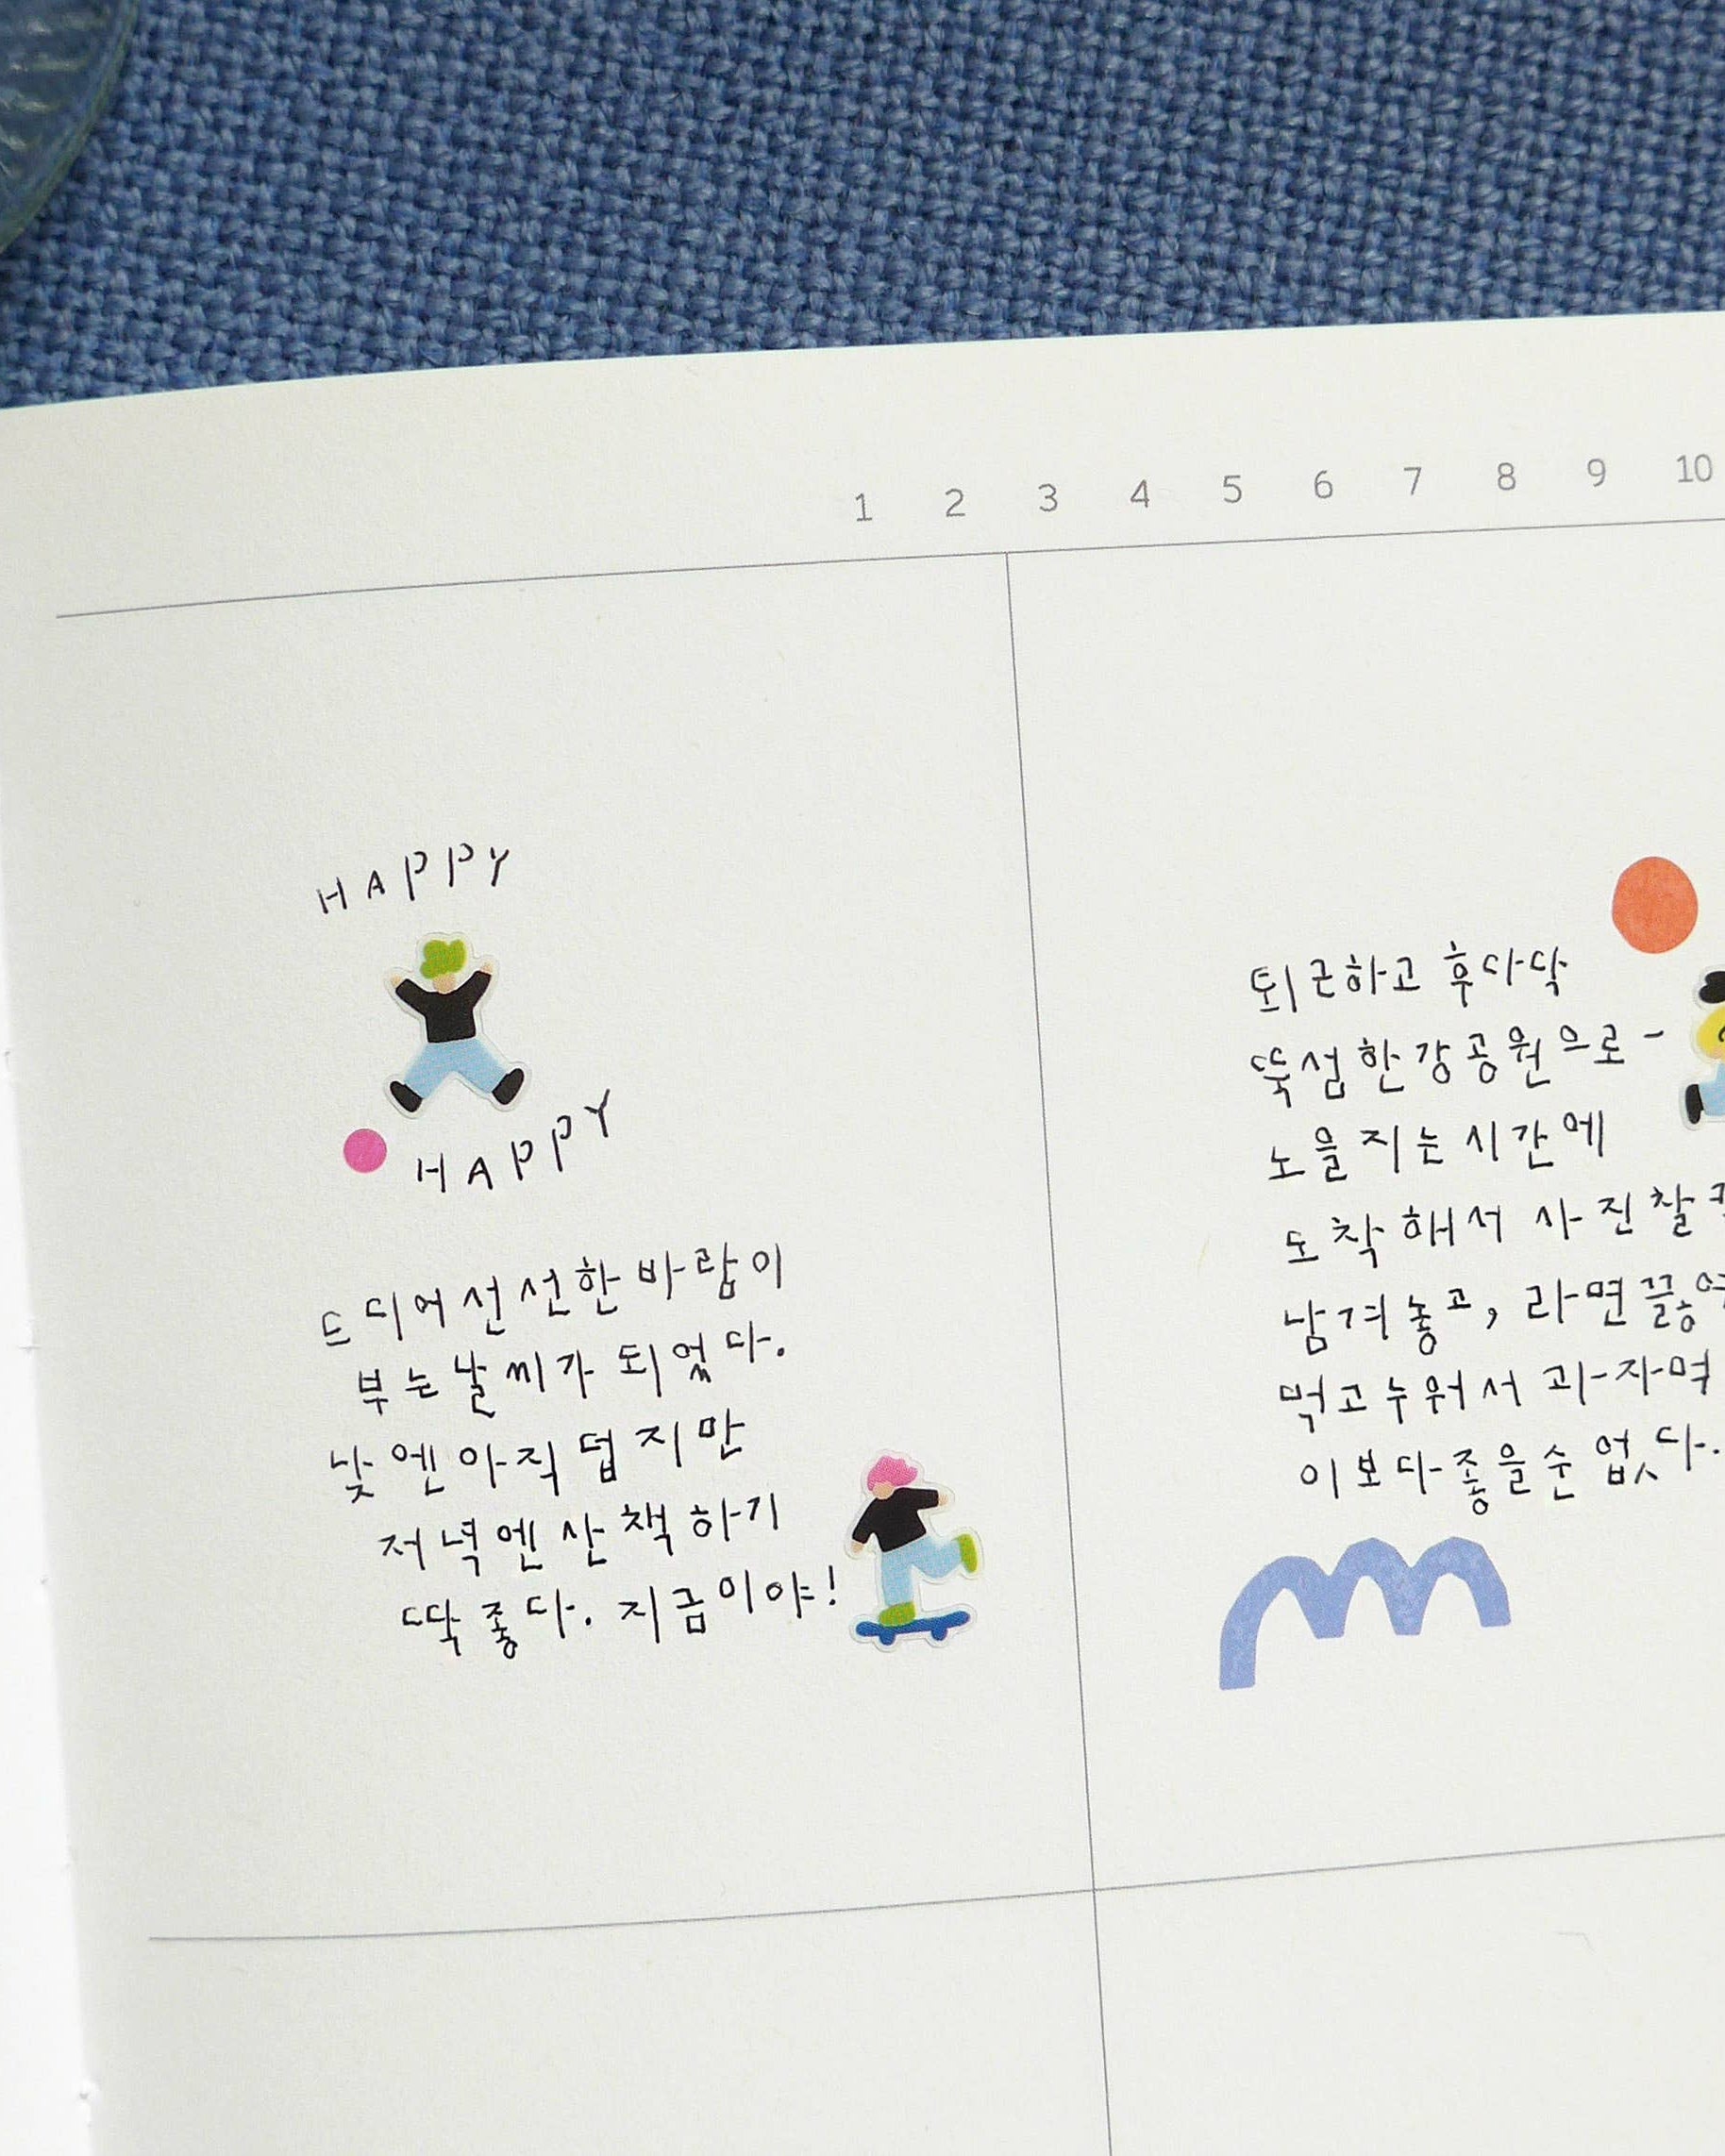 1 2 3 4 5 6 7 8 9 10
HAPPY
HAPPY
드디어 선선한 바람이
부는 날씨가 되었다.
낮엔 아직 덥지만
저녁엔 산책하기
딱 좋다. 지금이야!
퇴근하고 후다닥
뚝섬한강공원으로-
노을 지는 시간에
도착해서 사진
남겨놓고, 라면
먹고 누워서 과자
이보다 좋을 순 없다.